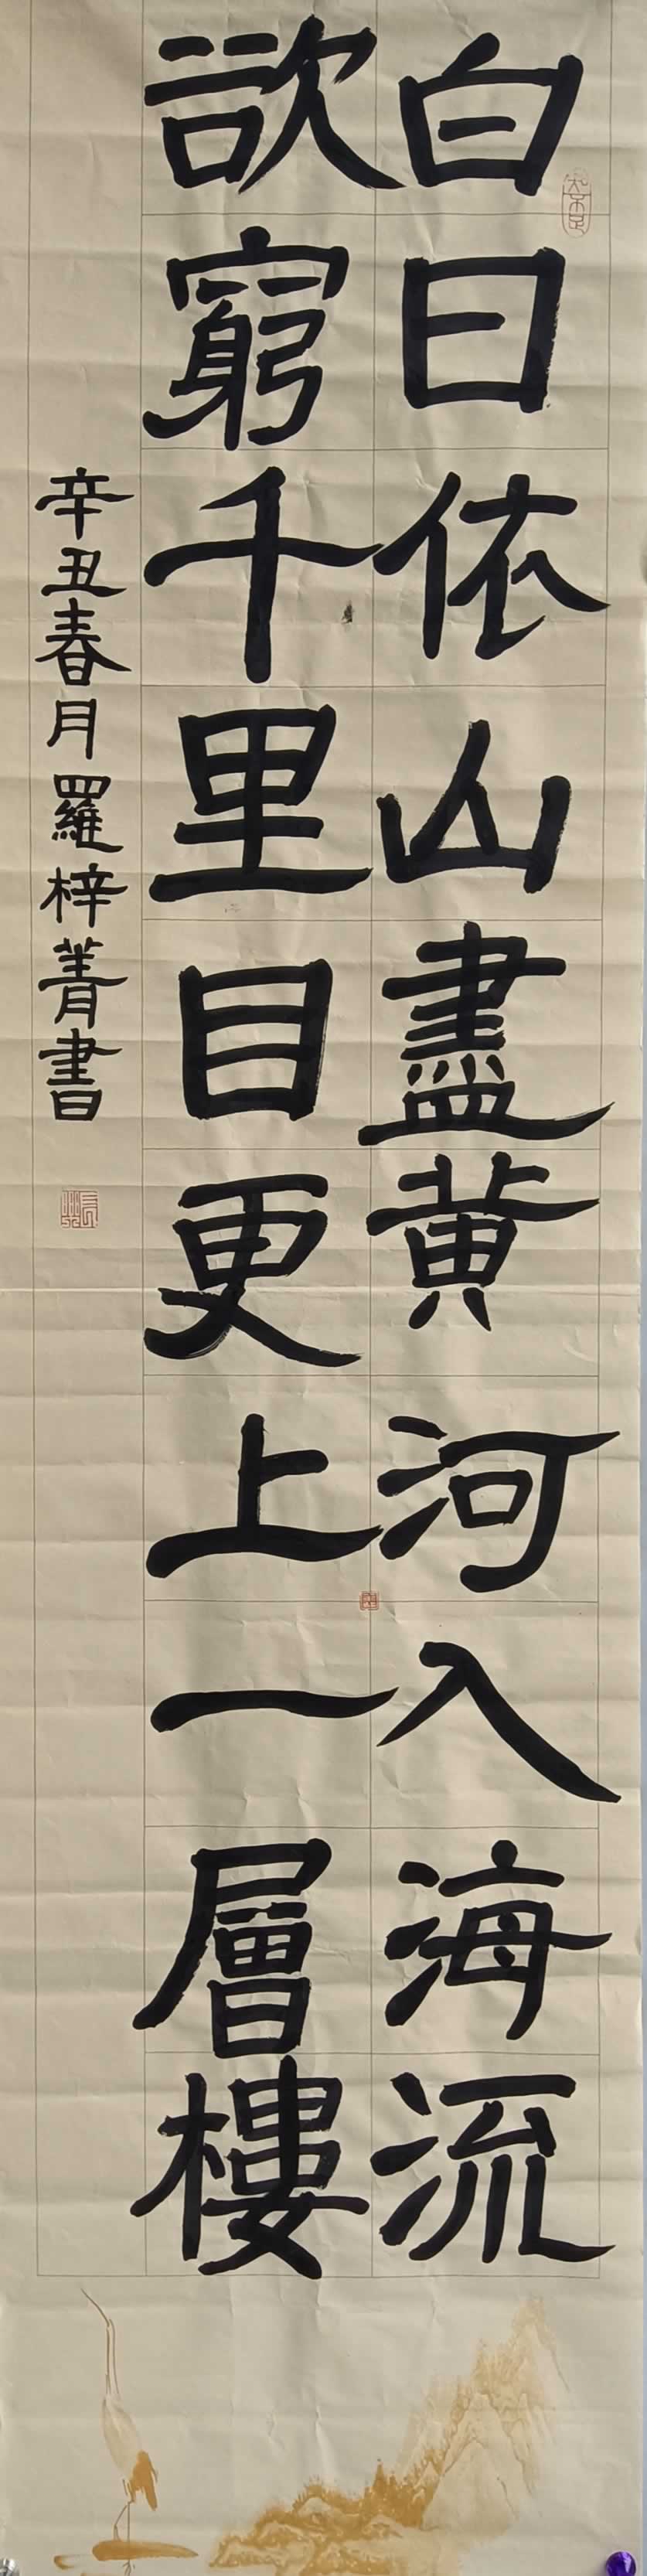 白日依山盡黄河入海流
欲窮千里目更上一層樓
辛丑春月羅梓菁書